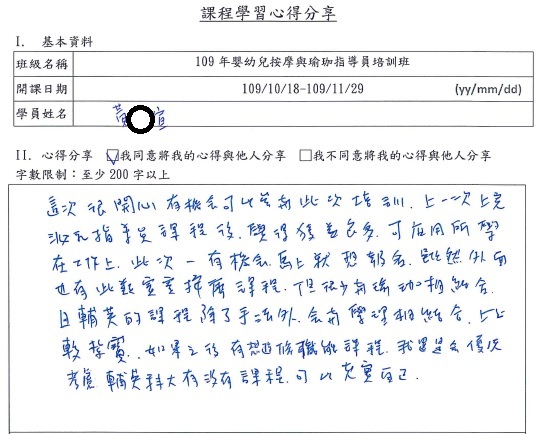 課程學習心得分享
I. 基本資料
班級名稱 109 年嬰幼兒按摩與瑜珈指導員培訓班
開課日期 109/10/18-109/11/29 (yy/mm/dd)
學員姓名 黃 宣
II. 心得分享 ☑我同意將我的心得與他人分享 □我不同意將我的心得與他人分享
字數限制：至少 200 字以上
這次很開心有機會可以參與此次培訓，上一次上完
泌乳指導員課程後，覺得獲益良多，可應用所學
在工作上，此次一有機會馬上就想報名，雖然外面
也有此類寶寶按摩課程，但很少有瑜珈相結合，
且輔英的課程除了手法外，會與學理相結合，比
較紮實，如果之後有想進修職能課程，我還是會優先
考慮輔英科大有沒有課程，可以充實自己。